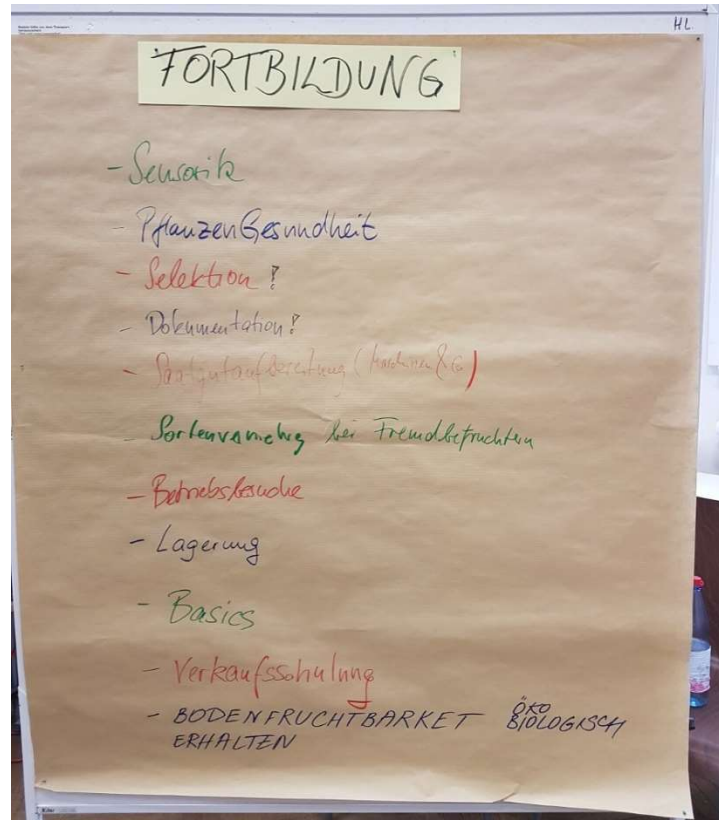 HL
FORTBILDUNG
- Sensorik
- PflanzenGesundheit
- Selektion?
- Dokumentation?
- Saatgutaufbereitung (Maschinen & Co)
- Sortenvermehrg bei Fremdbefruchtern
- Betriebsbesuche
- Lagerung
- Basics
- Verkaufsschulung
- BODENFRUCHTBARKET ÖKO
BIOLOGISCH
ERHALTEN